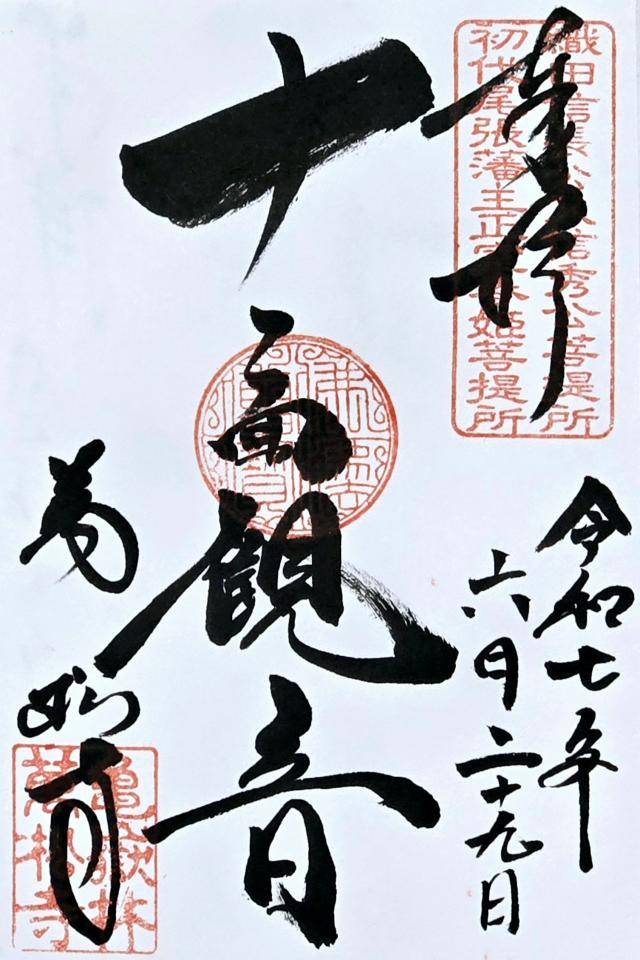 奉拝
織田信長公父信秀公菩提所
初代尾張藩主正室春姫菩提所
令和七年
六月二十九日
十一面観音
萬松寺
亀嶽林
萬松寺